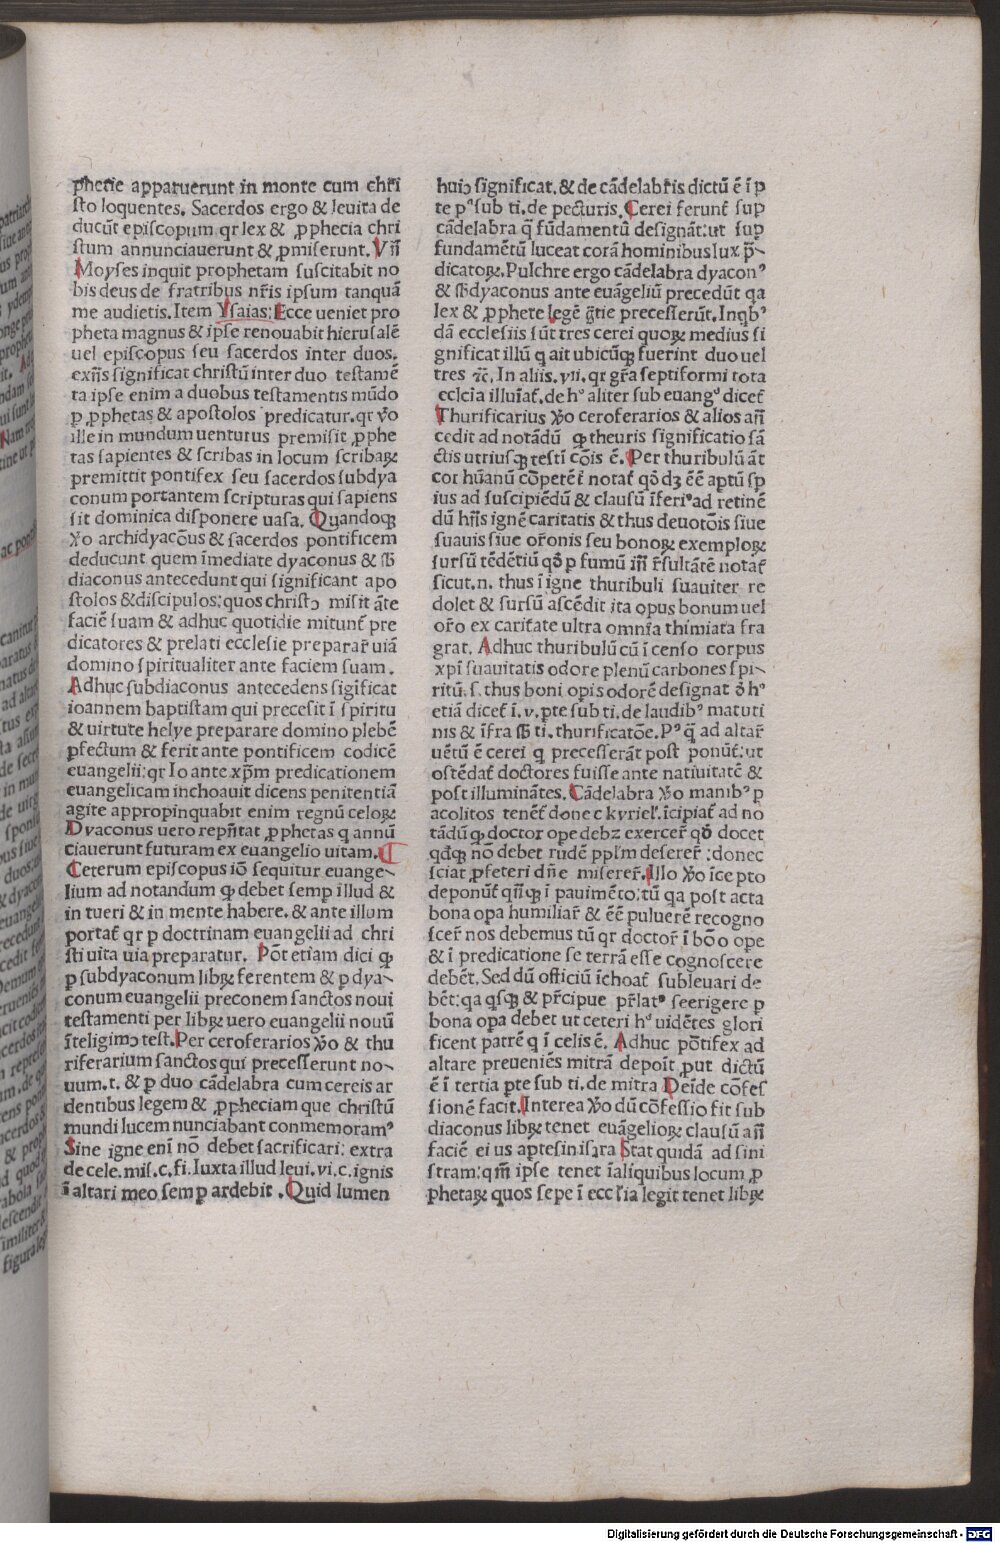 phetie apparuerunt in monte cum chr̄i
ſto loquentes. Sacerdos ergo & leuita de
ducūt epiſcopum qr lex & ꝓphecia chri
ſtum annunciauerunt & ꝓmiſerunt. Vn̄
Moyſes inquit prophetam ſuſcitabit no
bis deus de fratribus nr̄is ipſum tanquā
me audietis. Item Yſaias: Ecce ueniet pro
pheta magnus & ipſe renouabit hieruſalē
uel epiſcopus ſeu ſacerdos inter duos.
exn̄s ſignificat chriſtū inter duo teſtamē
ta ipſe enim a duobus teſtamentis mūdo
ꝑ ꝓphetas & apoſtolos predicatur. qr v̄o
ille in mundum uenturus premiſit ꝓphe
tas ſapientes & ſcribas in locum ſcribaꝝ
premittit pontifex ſeu ſacerdos ſubdya
conum portantem ſcripturas qui ſapiens
ſit dominica diſponere uaſa. Quandoqꝫ
v̄o archidyacōus & ſacerdos pontificem
deducunt quem īmediate dyaconus & ſb̄
diaconus antecedunt qui ſignificant apo
ſtolos & diſcipulos: quos chriſtꝰ miſit āte
faciē ſuam & adhuc quotidie mitunt̄ pre
dicatores & prelati eccleſie preparar̄ uiā
domino ſpiritualiter ante faciem ſuam.
Adhuc ſubdiaconus antecedens ſigīficat
ioannem baptiſtam qui preceſit ī ſpiritu
& uirtute helye preparare domino plebē
ꝑfectum & ferit ante pontificem codicē
euangelii: qr Io ante xp̄m predicationem
euangelicam inchoauit dicens penitentiā
agite appropinquabit enim regnū celoꝝ
Dyaconus uero repn̄tat ꝓphetas q annū
ciauerunt futuram ex euangelio uitam.
Ceterum epiſcopus iō ſequitur euange-
lium ad notandum ꝙ debet ſemꝑ illud &
in tueri & in mente habere. & ante illum
portat̄ qr ꝑ doctrinam euangelii ad chri
ſti uita uia preparatur. Pōt etiam dici ꝙ
ꝑ ſubdyaconum libꝝ ferentem & ꝑ dya-
conum euangelii preconem ſanctos noui
teſtamenti per libꝝ uero euangelii nouū
īteligimꝰ teſt. Per ceroferarios v̄o & thu
riferarium ſanctos qui preceſſerunt no-
uum. t. & ꝑ duo cādelabra cum cereis ar
dentibus legem & ꝓpheciam que chriſtū
mundi lucem nunciabant conmemoramꝰ
Sine igne enī nō debet ſacrificari: extra
de cele. miſ. c. fi. Iuxta illud leui. vi. c. ignis
ī altari meo ſemꝑ ardebit. Quid lumen
huiꝰ ſignificat. & de cādelabr̄is dictū ē ī ꝑ
te pᵃ ſub ti. de pecturis. Cerei ferunt̄ ſuꝑ
cādelabra q̄ fūdamentū deſignāt: ut ſuꝑ
fundamētū luceat corā hominibus lux p̄-
dicatoꝝ. Pulchre ergo cādelabra dyaconꝰ
& ſb̄dyaconus ante euāgeliū precedūt qa
lex & ꝓphete legē gr̄tie preceſſerūt. In qbꝰ
dā eccleſiis ſūt tres cerei quoꝝ medius ſi
gnificat illū q ait ubicūqꝫ fuerint duo uel
tres ⁊c̄. In aliis. vii. qr gr̄a ſeptiformi tota
eccleīa illuīat̄. de hꝰ aliter ſub euangꝰ dicet̄
Thurificarius v̄o ceroferarios & alios an̄
cedit ad notādū ꝙ theuris ſignificatio ſā
ctis utriuſqꝫ teſtī cōis ē. Per thuribulū āt
cor hūanū cōpetēt̄ notat̄ qd̄ dꝫ ēē aptū ſꝑ
ius ad ſuſcipiēdū & clauſū īferiꝰ ad retinē
dū hn̄s ignē caritatis & thus deuotōis ſiue
ſuauis ſiue or̄onis ſeu bonoꝝ exemploꝝ
ſurſū tēdētiū qd̄ ꝑ fumū in̄ r̄ſultātē notat̄
ſicut. n. thus ī igne thuribuli ſuauiter re
dolet & ſurſū aſcēdit ita opus bonum uel
or̄o ex caritate ultra omnīa thimiata fra
grat. Adhuc thuribulū cū ī cenſo corpus
xp̄i ſuauitatis odore plenū carbones ſpi-
ritū. ſ. thus boni opis odorē deſignat ð hꝰ
etiā dicet̄ ī. v. pte ſub ti. de laudibꝰ matuti
nis & īfra ſb̄ ti. thurificatōe. Pꝰ q̄ ad altar̄
uētū ē cerei q preceſſerāt poſt ponūt̄: ut
oſtēdat̄ doctores fuiſſe ante natiuitatē &
poſt illuminātes. Cādelabra v̄o manibꝰ ꝑ
acolitos tenēt̄ donec kyrieľ. īcipiat̄ ad no
tādū ꝙ doctor ope debꝫ exercer̄ qd̄ docet
qdqꝫ nō debet rudē pplm̄ deſerer̄: donec
ſciat ꝓfeteri dn̄e miſerer̄. Illo v̄o īcepto
deponūt̄ qn̄qꝫ ī pauimēto: tū qa poſt acta
bona opa humiliar̄ & ēē puluerē recogno
ſcer̄ nos debemus tū qr doctor̄ ī bōo ope
& ī predicatione ſe terrā eſſe cognoſcere
debēt. Sed dū officiū īchoat̄ ſubleuari de
bēt: qa qſqꝫ & pr̄cipue pr̄latꝰ ſe erigere ꝑ
bona opa debet ut ceteri hꝰ uidētes glori
ficent patrē q ī celis ē. Adhuc pōtifex ad
altare preueniēs mitrā depoīt ꝓut dictū
ē ī tertia ꝑte ſub ti. de mitra Deīde cōfeſ
ſionē facit. Interea v̄o dū cōfeſſio fit ſub
diaconus libꝝ tenet euāgelioꝝ clauſū an̄
faciē ei us aptes in iſara Stat quidā ad ſini
ſtram: qm̄ ipſe tenet īaliquibus locum ꝓ
phetaꝝ quos ſepe ī eccľia legit tenet libꝝ
Digitalisierung gefördert durch die Deutsche Forschungsgemeinschaft - DFG